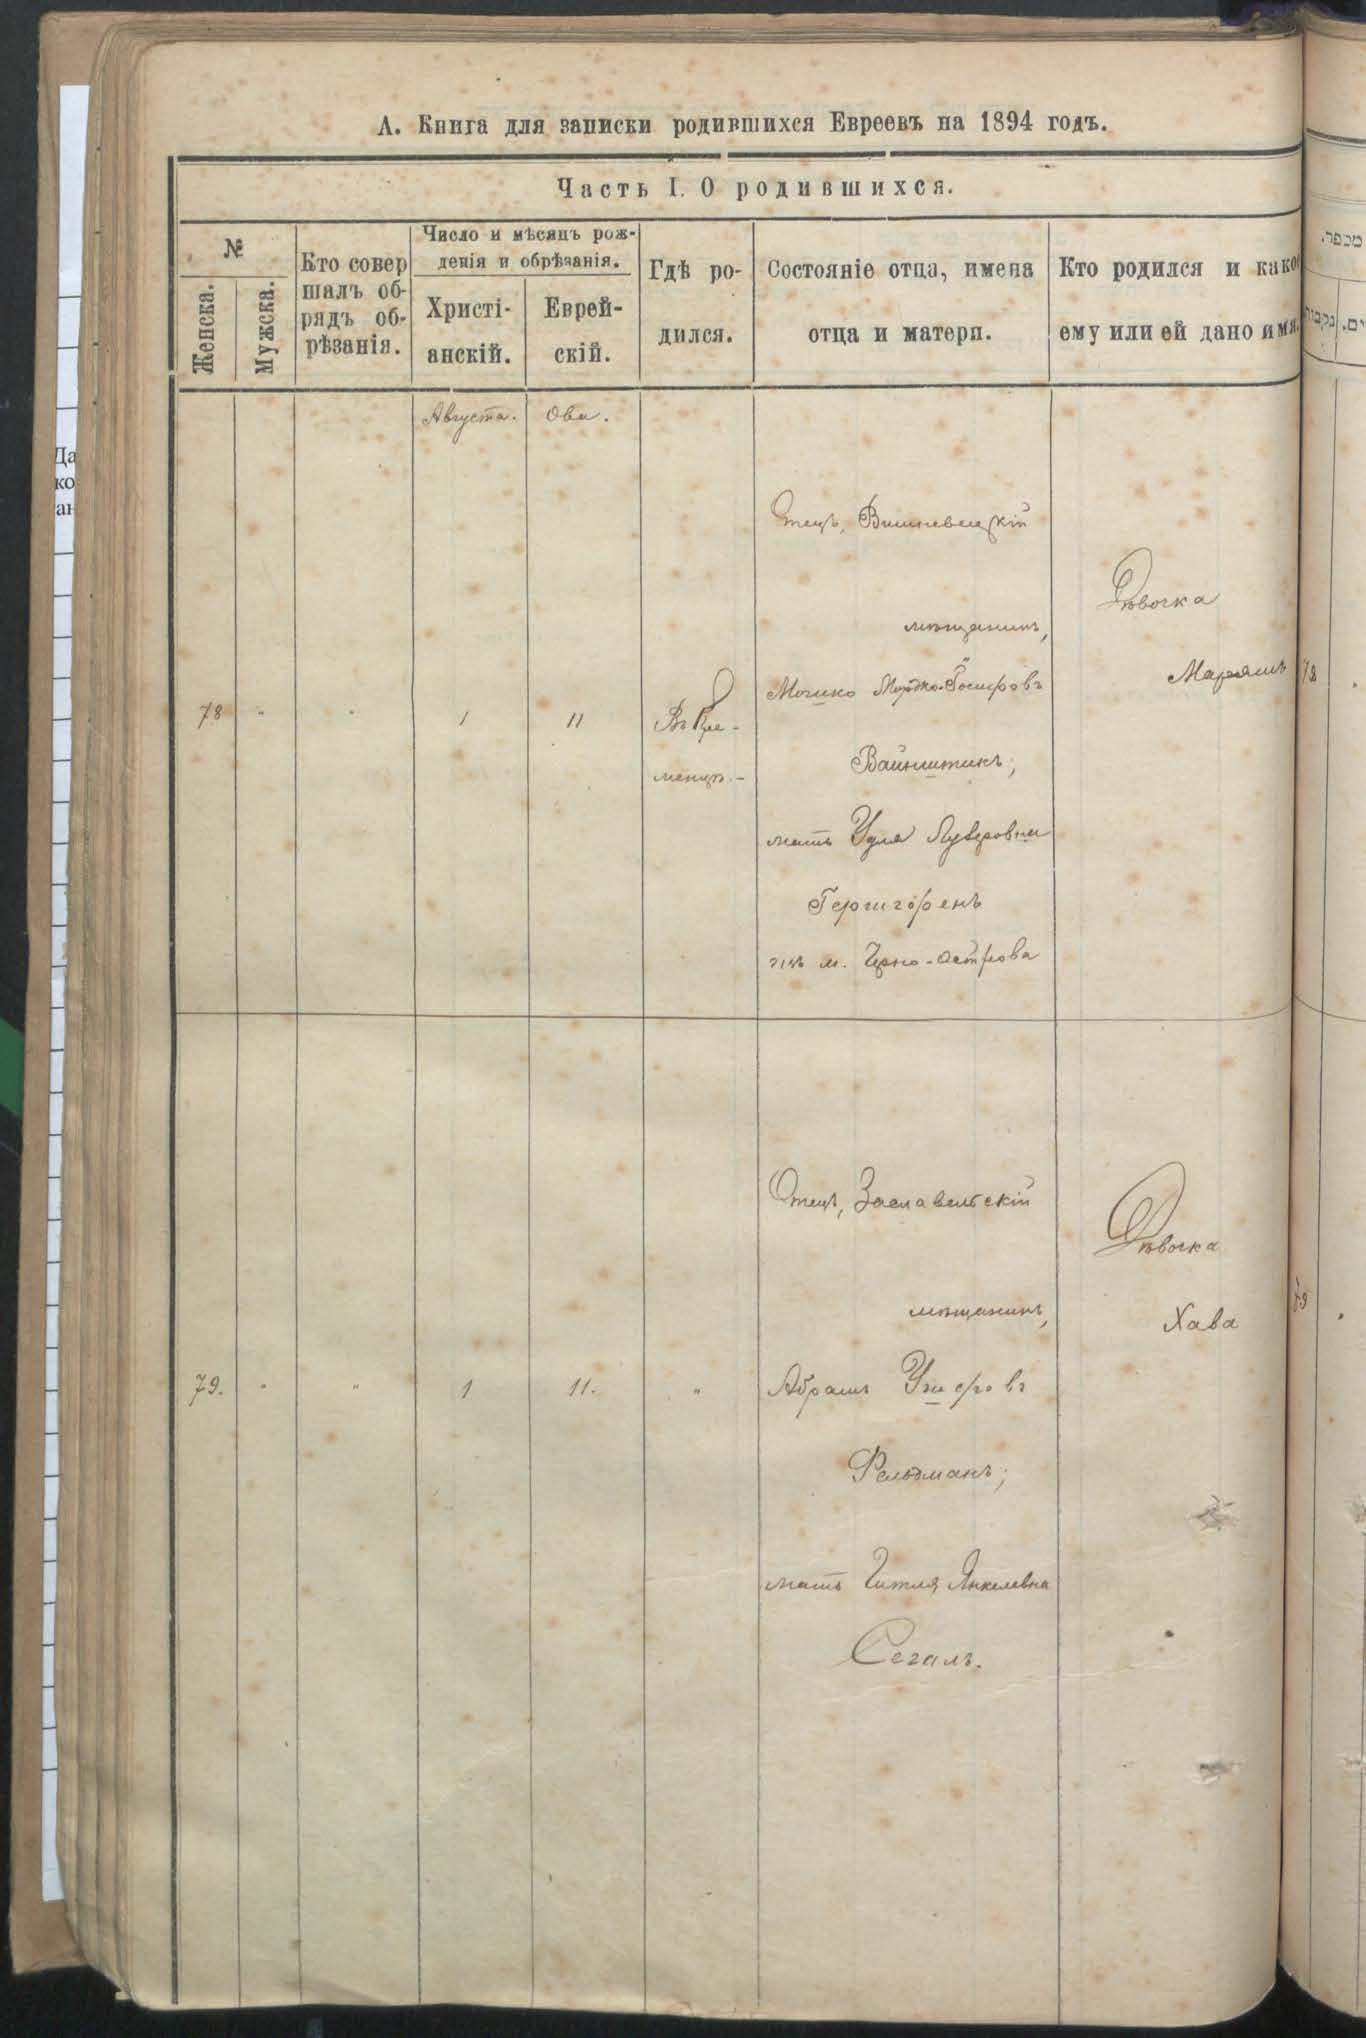 А. Книга для записки родившихся Евреевъ на 1894 годъ.
Часть I. О родившихся.
№
Женска.
Мужска.
Кто совер
шалъ об-
рядъ об-
рѣзанія.
Число и мѣсяцъ рож-
денія и обрѣзанія.
Христі-
анскій.
Еврей-
скій.
Гдѣ ро-
дился.
Состояніе отца, имена
отца и матери.
Кто родился и како
ему или ей дано имя.
Августа.
Ова.
78
"
"
1
11
Въ Кре-
менцѣ.-
Отецъ, Вишневецкій
мѣщанинъ,
Мошко Мордко-
Вайнштикъ;
мать Удля
из м. Черно-Острова
Дѣвочка
Марьямъ
78
79.
"
"
1
11.
"
Отецъ, Заславльскій
мѣщанинъ,
Абрамъ Ушеровъ
Фельдманъ;
мать Гитля Янкелевна
Сегалъ.
Дѣвочка
Хава
79